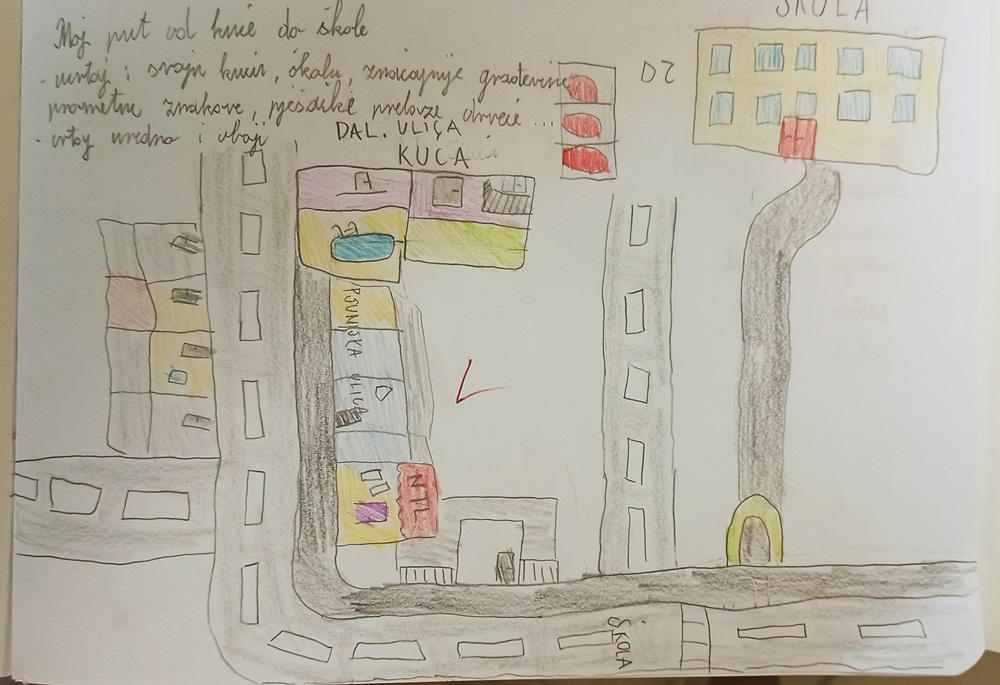 Moj put od kuće do škole
ŠKOLA
- ucrtaj : svoju kuću, školu, značajnije građevine
DZ
prometne znakove, pješačke prelaze, drveće ...
- crtaj uredno i oboji
DAL. ULICA
KUĆA
ROVNJSKA ULICA
NTL
ŠKOLA